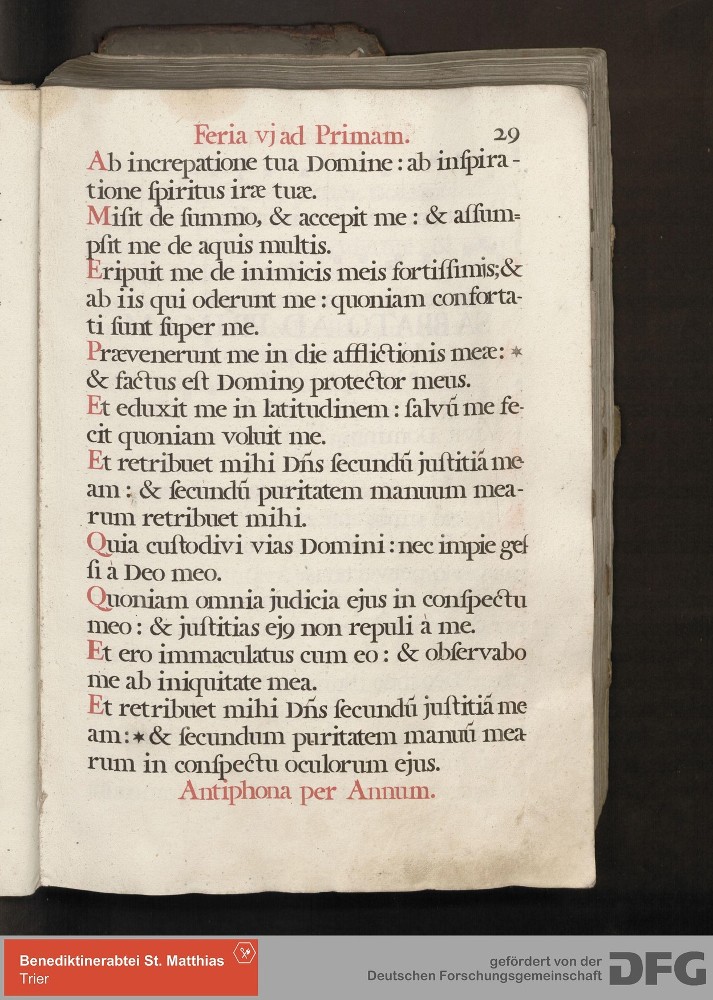 Feria vj ad Primam. 29
Ab increpatione tua Domine : ab inſpira-
tione ſpiritus iræ tuæ.
Miſit de ſummo, & accepit me : & aſſum=
pſit me de aquis multis.
Eripuit me de inimicis meis fortiſſimis; &
ab iis qui oderunt me : quoniam conforta-
ti ſunt ſuper me.
Prævenerunt me in die afflictionis meæ: *
& factus eſt Domin9 protector meus.
Et eduxit me in latitudinem : ſalvū me fe-
cit quoniam voluit me.
Et retribuet mihi Dn̄s ſecundū juſtitiā me
am : & ſecundū puritatem manuum mea-
rum retribuet mihi.
Quia cuſtodivi vias Domini : nec impie geſ
ſi à Deo meo.
Quoniam omnia judicia ejus in conſpectu
meo : & juſtitias ej9 non repuli à me.
Et ero immaculatus cum eo : & obſervabo
me ab iniquitate mea.
Et retribuet mihi Dn̄s ſecundū juſtitiā me
am : * & ſecundum puritatem manuū mea
rum in conſpectu oculorum ejus.
Antiphona per Annum.
Benediktinerabtei St. Matthias
Trier
gefördert von der
Deutschen Forschungsgemeinschaft DFG